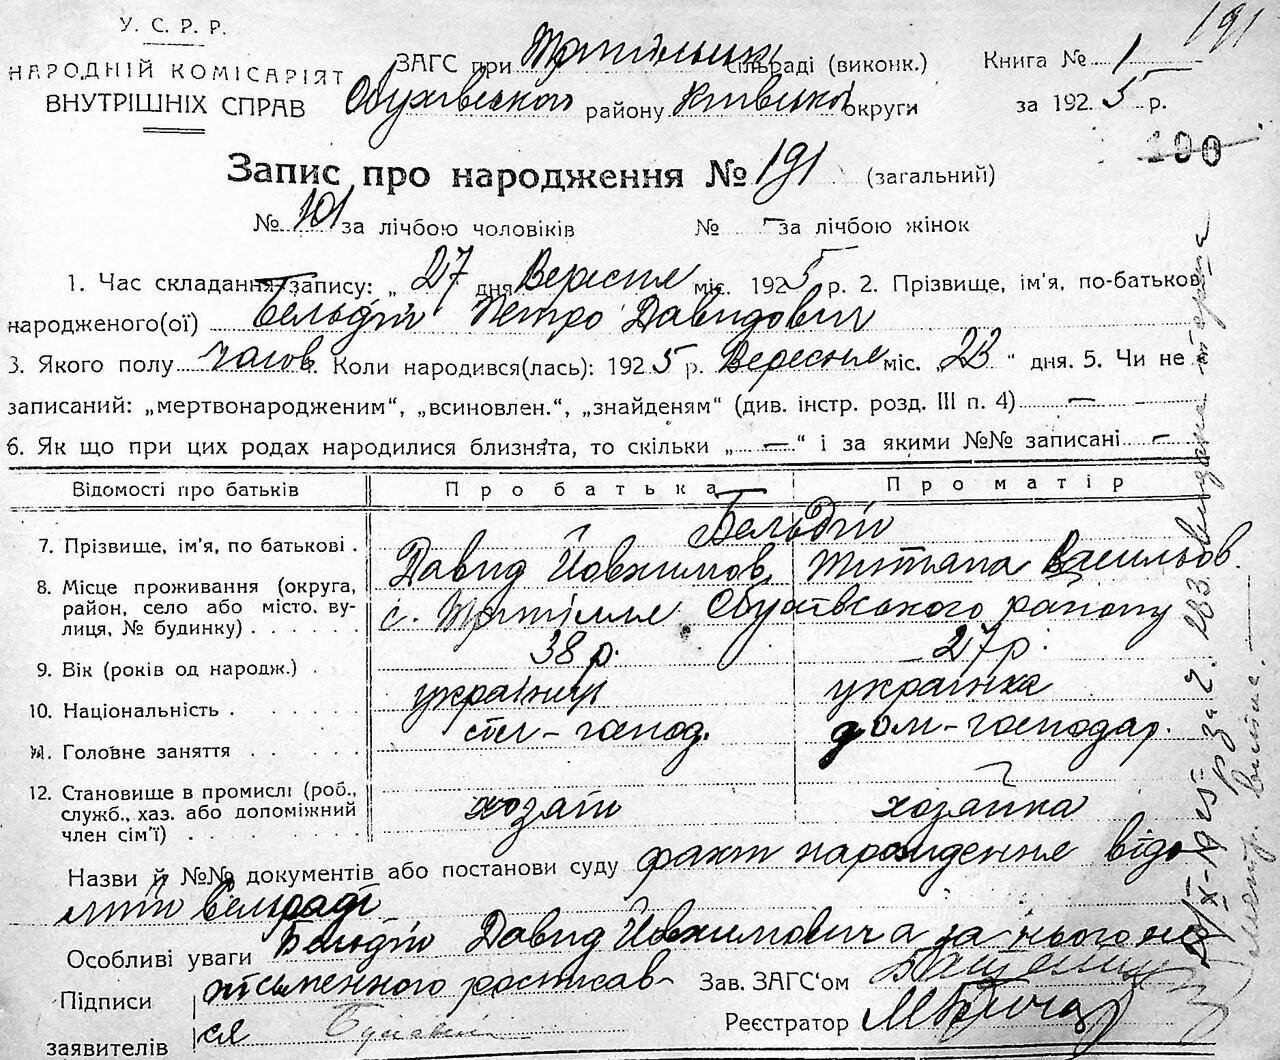 191
У. С. Р. Р.
НАРОДНІЙ КОМІСАРІЯТ
ВНУТРІШНІХ СПРАВ
ЗАГС при Трипільськ. сільраді (виконк.)
Обухівського району Київської округи
Книга № 1
за 1925 р.
100
Запис про народження № 191 (загальний)
№ 101 за лічбою чоловіків № – за лічбою жінок
1. Час складання запису: „ 27 дня Вересня міс. 1925 р. 2. Прізвище, ім'я, по-батьков
народженого(ої) Бельдій Петро Давидович
3. Якого полу чолов. Коли народився(лась): 1925 р. Вересня міс. „23“ дня. 5. Чи не
записаний: „мертвонародженим“, „всиновлен.“, „знайденям“ (див. інстр. розд. III п. 4) —
6. Як що при цих родах народилися близнята, то скільки „ — “ і за якими №№ записані —
Відомості про батьків Про батька Про матір
7. Прізвище, ім'я, по батькові . Бельдій
Давид Йовхимов. Титяна Васильов.
8. Місце проживання (округа, район, село або місто, вулиця, № будинку) . . . . . . с. Трипілля Обухівського району
9. Вік (років од народж.) . 38 р. 27 р.
10. Національність . . . . українці українка
11. Головне заняття . . . . сіл-господ. дом-господар.
12. Становище в промислі (роб., служб., хаз. або допоміжний член сім'ї) . . . . . . хозяїн хозяйка
Назви й №№ документів або постанови суду факт народження відо
мий сельраді
Особливі уваги Бельдій Давид Йовхимовича за нього не
Підписи заявителів письменного росписав-
ся
Зав. ЗАГС'ом
Реєстратор